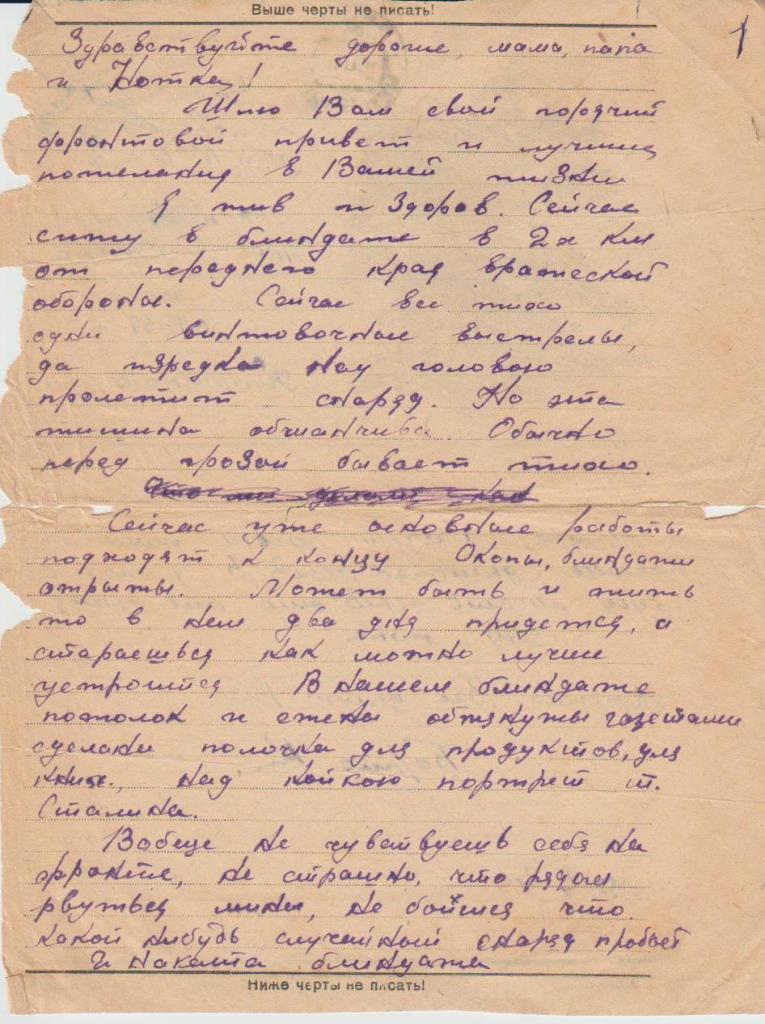 Выше черты не писать!
1
Здравствуйте дорогие, мама, папа
и Ноткa!
Шлю Вам свой горячий
фронтовой привет и лучшие
пожелания в Вашей жизни
Я жив и здоров. Сейчас
сижу в блиндаже в 2х км
от переднего края вражеской
обороны. Сейчас все тихо
одни винтовочные выстрелы,
да изредка над головою
пролетит снаряд. Но эта
тишина обманчива. Обычно
перед грозой бывает тихо.
Сейчас уже основные работы
подходят к концу Окопы, блиндажи
отрыты. Может быть и жить
то в нем два дня придется, а
стараешься как можно лучше
устроится В нашем блиндаже
потолок и стены обтянуты газетами
сделани полочка для продуктов, для
книг, над койкою портрет т.
Сталина.
Вобще не чувствуешь себя на
фронте, не страшно, что рядом
рвуться мины, не боишся что
какой нибудь случайный снаряд пробьет
2 наката блиндажа
Ниже черты не писать!